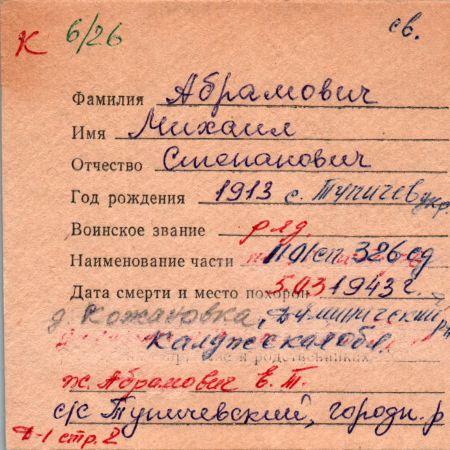 К 6/26 св.
Фамилия Абрамович
Имя Михаил
Отчество Степанович
Год рождения 1913 с. Тупичев укр.
Воинское звание ряд.
Наименование части 326 сд
Дата смерти и место похорон 5.03.1943 г.
д. Кожановка, Думиничский
Калужская обл.
родственниках
ж. Абрамович Е. Т.
с/с Тупичевский, городн. р
Д-1 стр. 2